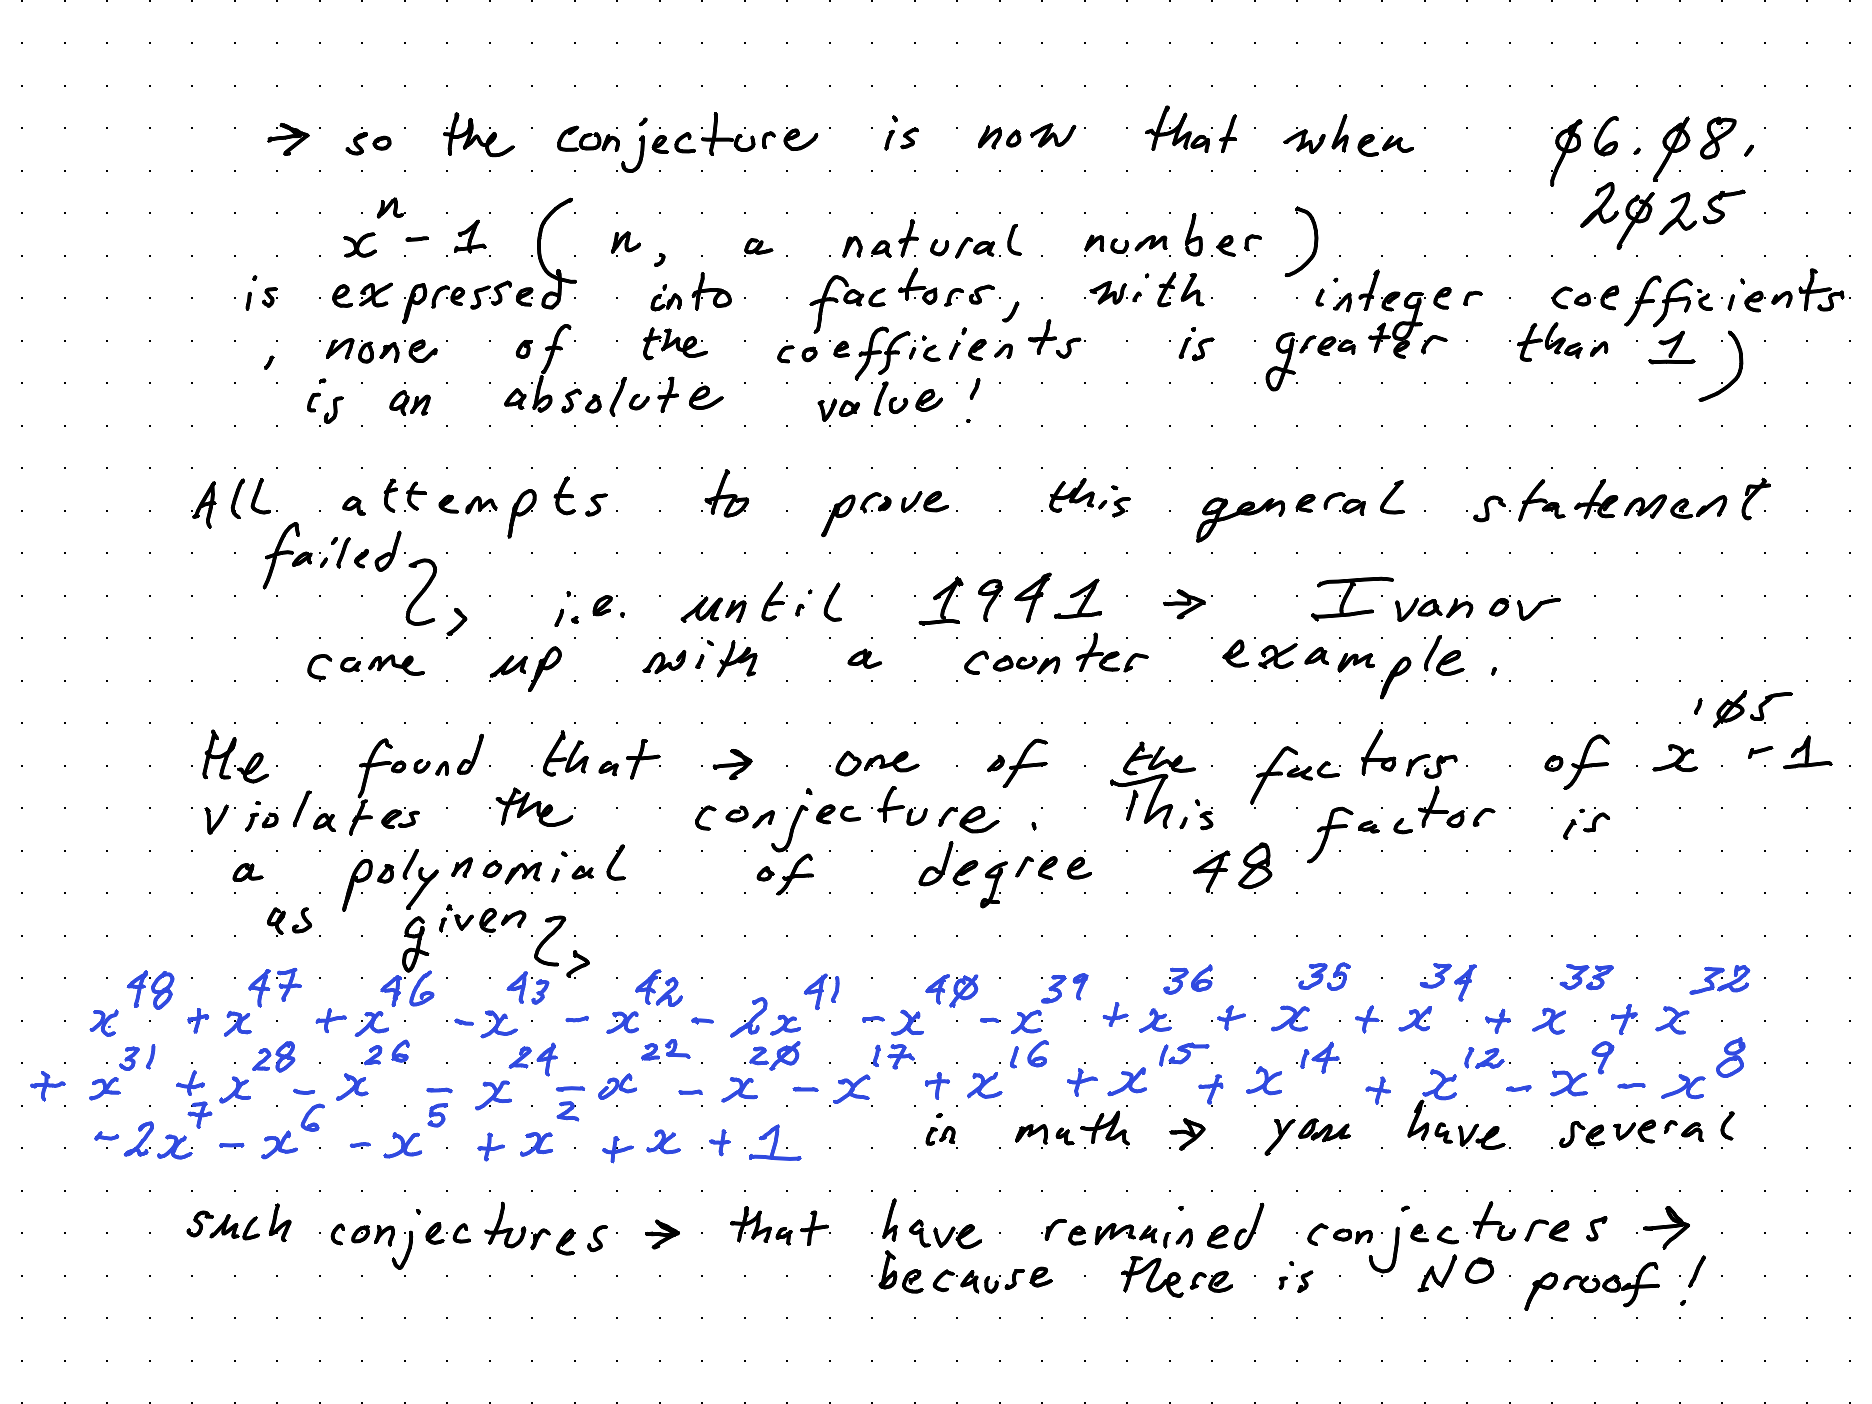 → so the conjecture is now that when 06.08.
2025
xⁿ - 1 ( n, a natural number )
is expressed into factors, with integer coefficients
, none of the coefficients is greater than 1)
is an absolute value!
All attempts to prove this general statement
failed
i.e. until 1941 → Ivanov
came up with a counter example.
He found that → one of the factors of x¹⁰⁵ - 1
violates the conjecture. This factor is
a polynomial of degree 48
as given
x⁴⁸ + x⁴⁷ + x⁴⁶ - x⁴³ - x⁴² - 2x⁴¹ - x⁴⁰ - x³⁹ + x³⁶ + x³⁵ + x³⁴ + x³³ + x³²
+ x³¹ + x²⁸ - x²⁶ - x²⁴ - x²² - x²⁰ - x¹⁷ + x¹⁶ + x¹⁵ + x¹⁴ + x¹² - x⁹ - x⁸
- 2x⁷ - x⁶ - x⁵ + x² + x + 1 in math → you have several
such conjectures → that have remained conjectures →
because there is NO proof!